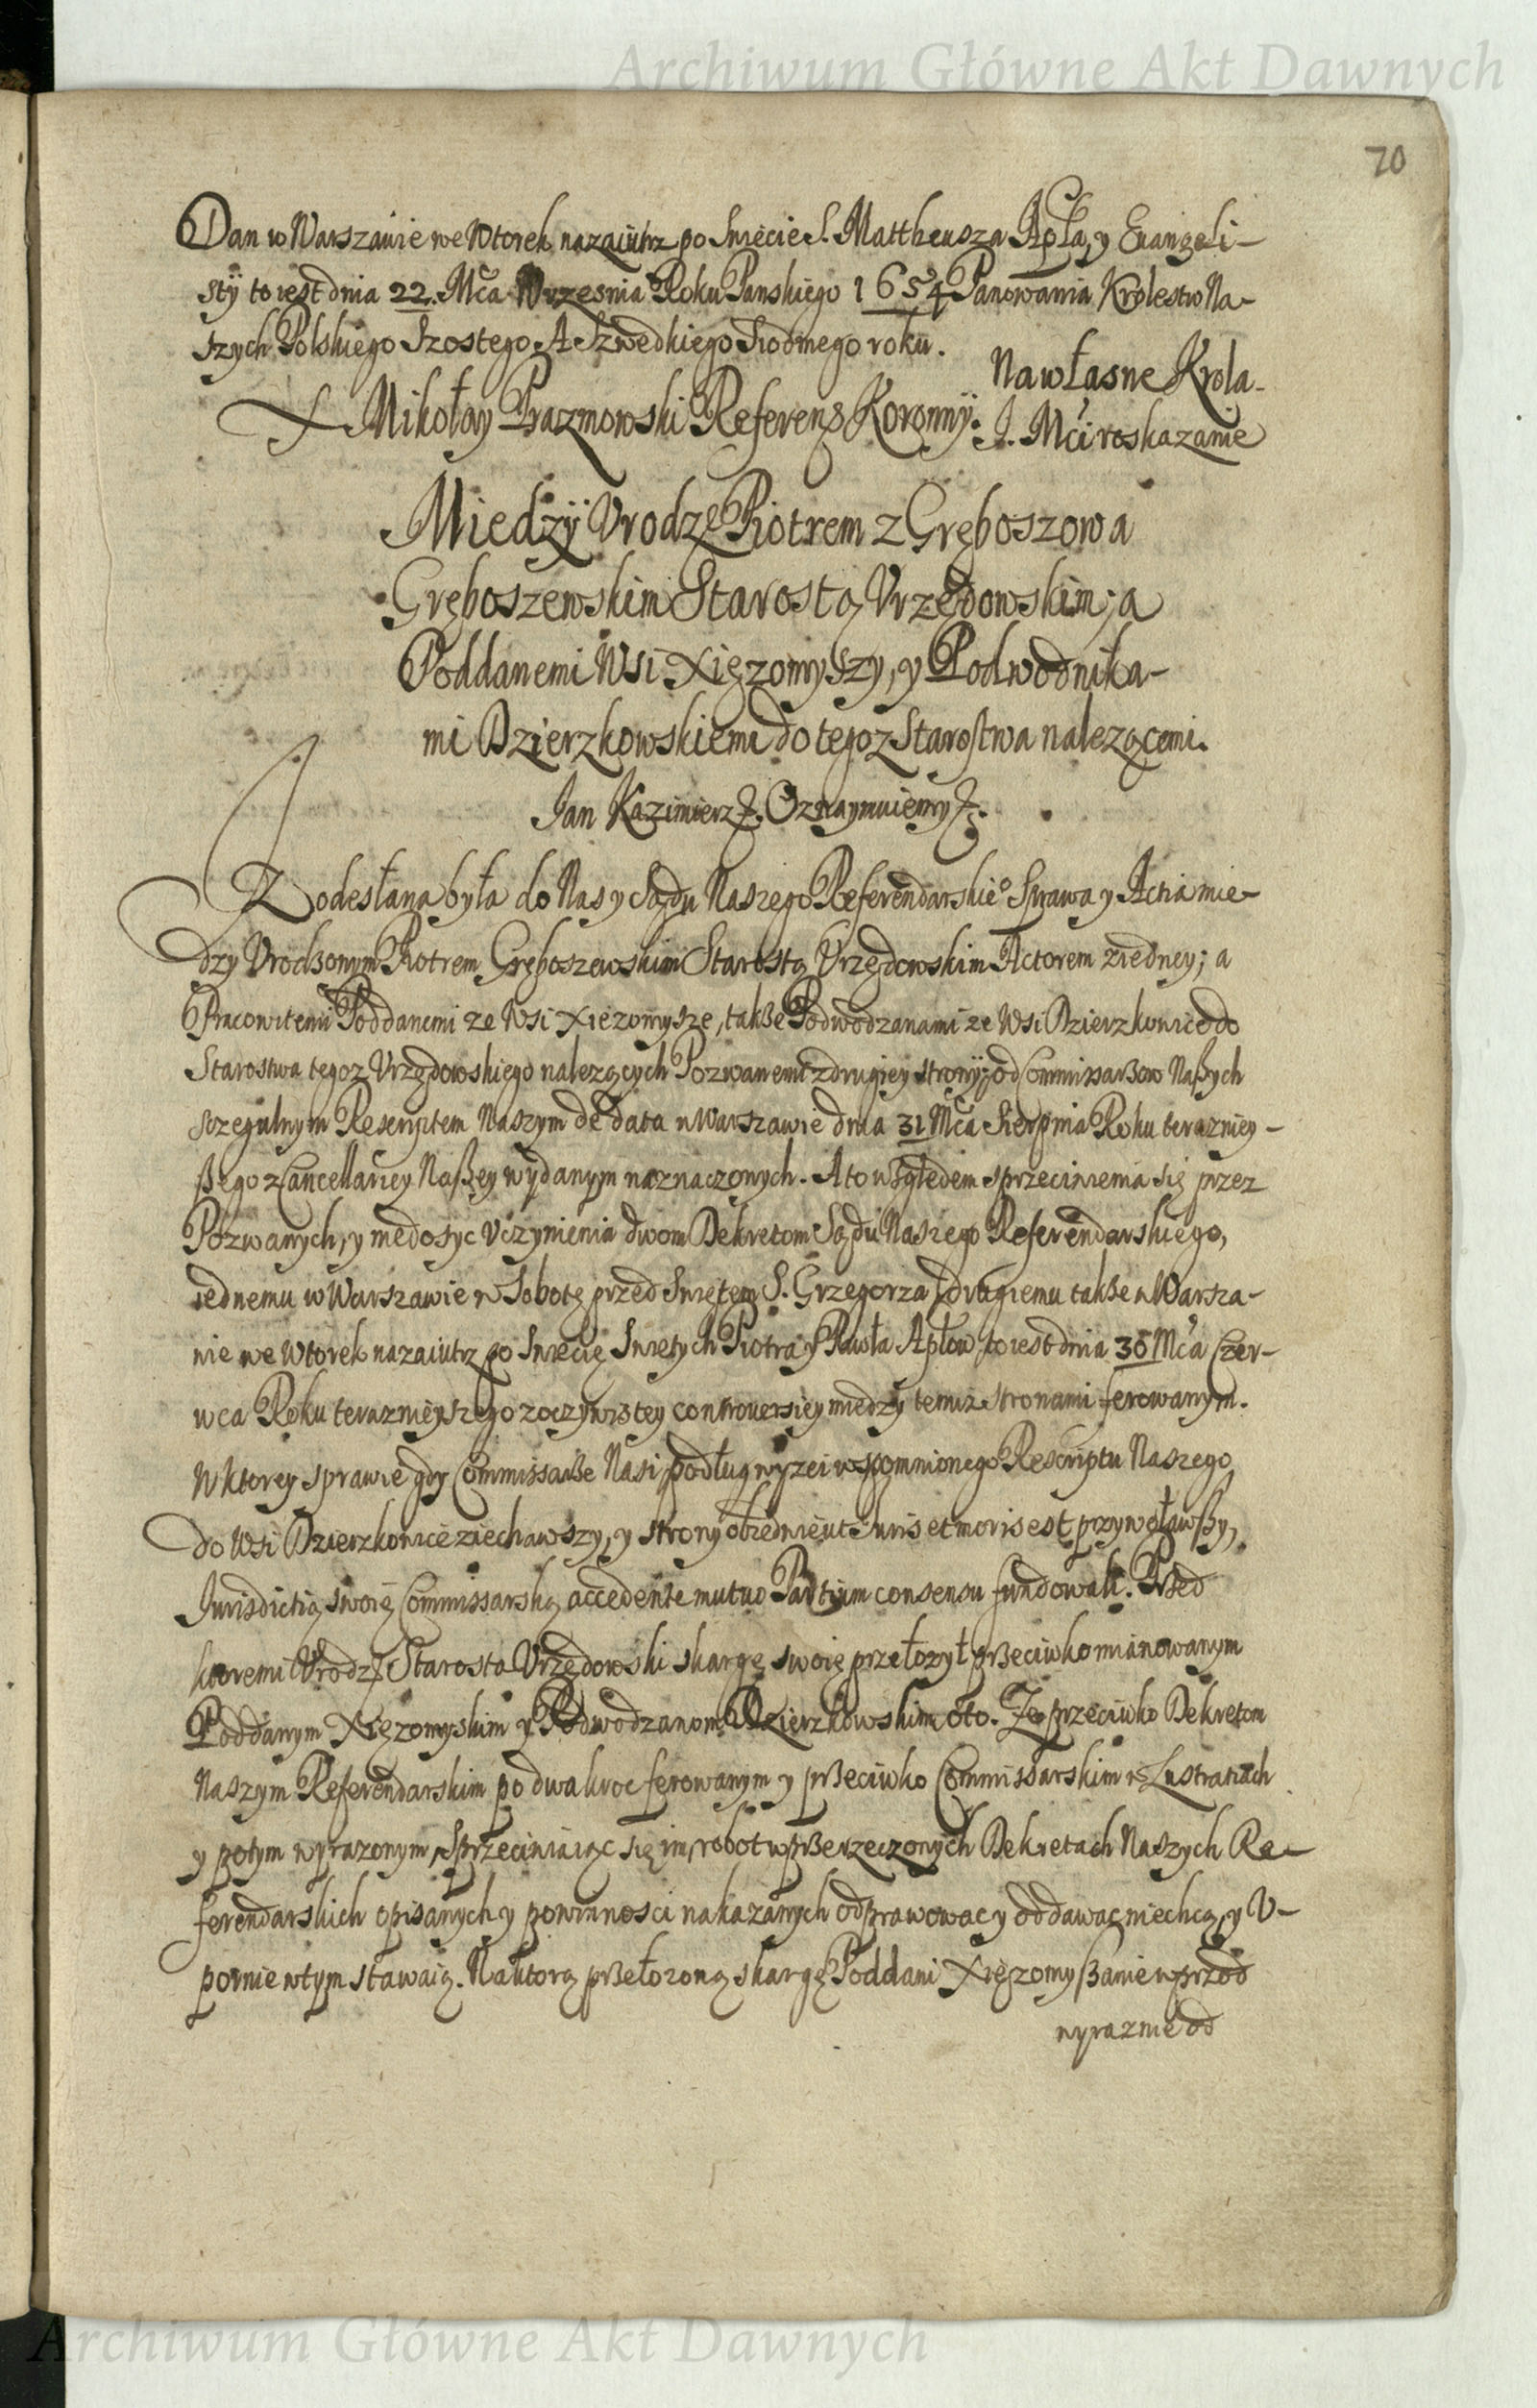 Archiwum Główne Akt Dawnych
70
Dan w Warszawie we Wtorek nazaiutrz po Swięcie S. Mattheusza Apła, y Euangeli-
sty to iest dnia 22. Mca Wrzesnia Roku Panskiego 1654 Panowania Krolestw Na-
szych Polskiego Szostego A Szwedkiego Siodmego roku.
Na własne Krola
J. Mci roskazanie
X Mikołay Prazmowski Referenz Koronny.
Miedzÿ Vrodz Piotrem z Gręboszowa
Gręboszewskim Starostą Vrzędowskim; a
Poddanemi Wsi Xięzomyszy, y Podwodnika-
mi Dzierzkowskiemi do tegoz Starostwa nalezącemi.
Jan Kazimierz &. Oznaymuiemy &.
Z odesłana była do Nas y Sądu Naszego Referendarskieo Sprawa y Actia mie-
dzy Vrodzonym Piotrem Gręboszewskim Starostą Vrzędowskim Actorem ziedney; a
Pracowitemi Poddanemi ze Wsi Xiezomysze, takße Podwodzanami ze Wsi Dzierzkowice do
Starostwa tegoz Vrzędowskiego nalezących Pozwanemi z drugiey strony; od Commissarßow Naßych
szegulnym Rescriptem Naszym de data w Warszawie dnia 31 Mca Sierpnia Roku terazniey-
ßego z Cancellariey Naßey wydanym naznaczonych. A to względem sprzeciwienia się przez
Pozwanych, y niedosyc vczynienia dwom Dekretom Sądu Naszego Referendarskiego,
iednemu w Warszawie w Sobotę przed Swiętem S. Grzegorza, drugiemu takße w Warsza-
wie we Wtorek nazaiutrz po Swięcie Swietych Piotra y Pawła Apłow, to iest dnia 30 Mca Czer-
wca Roku terazniejszego z oczywistey controuersiey miedzy temiz stronami ferowanym.
W ktorey sprawie gdy Commissarße Nasi podług wyzei wspomnionego Rescriptu Naszego
do Wsi Dzierzkowice ziechawszy, y strony obiedwie ut iuris et moris est przywoławßy,
Jurisdictią swoię Commissarską accedente mutuo Partium consensu fundowali. Przed
ktoremi Vrodz: Starosta Vrzędowski skargę swoię przełozył przeciwko mianowanym
Poddanym Xięzomyskim y Podwodzanom Dzierzkowskim oto. Ze przeciwko Dekretom
Naszym Referendarskim po dwakroc ferowanym y przeciwko Commissarskim w Lustratiach
y potym wyrazonym, sprzeciwiaiąc się im, robot w przerzeczonych Dekretach Naszych Re-
ferendarskich opisanych y powinnosci nakazanych odprawowac y oddawac niechcą, y V-
pornie w tym stawaią. Na ktorą przełozoną skargę Poddani Xięzomyßanie wprzod
wyraznie od
Archiwum Główne Akt Dawnych